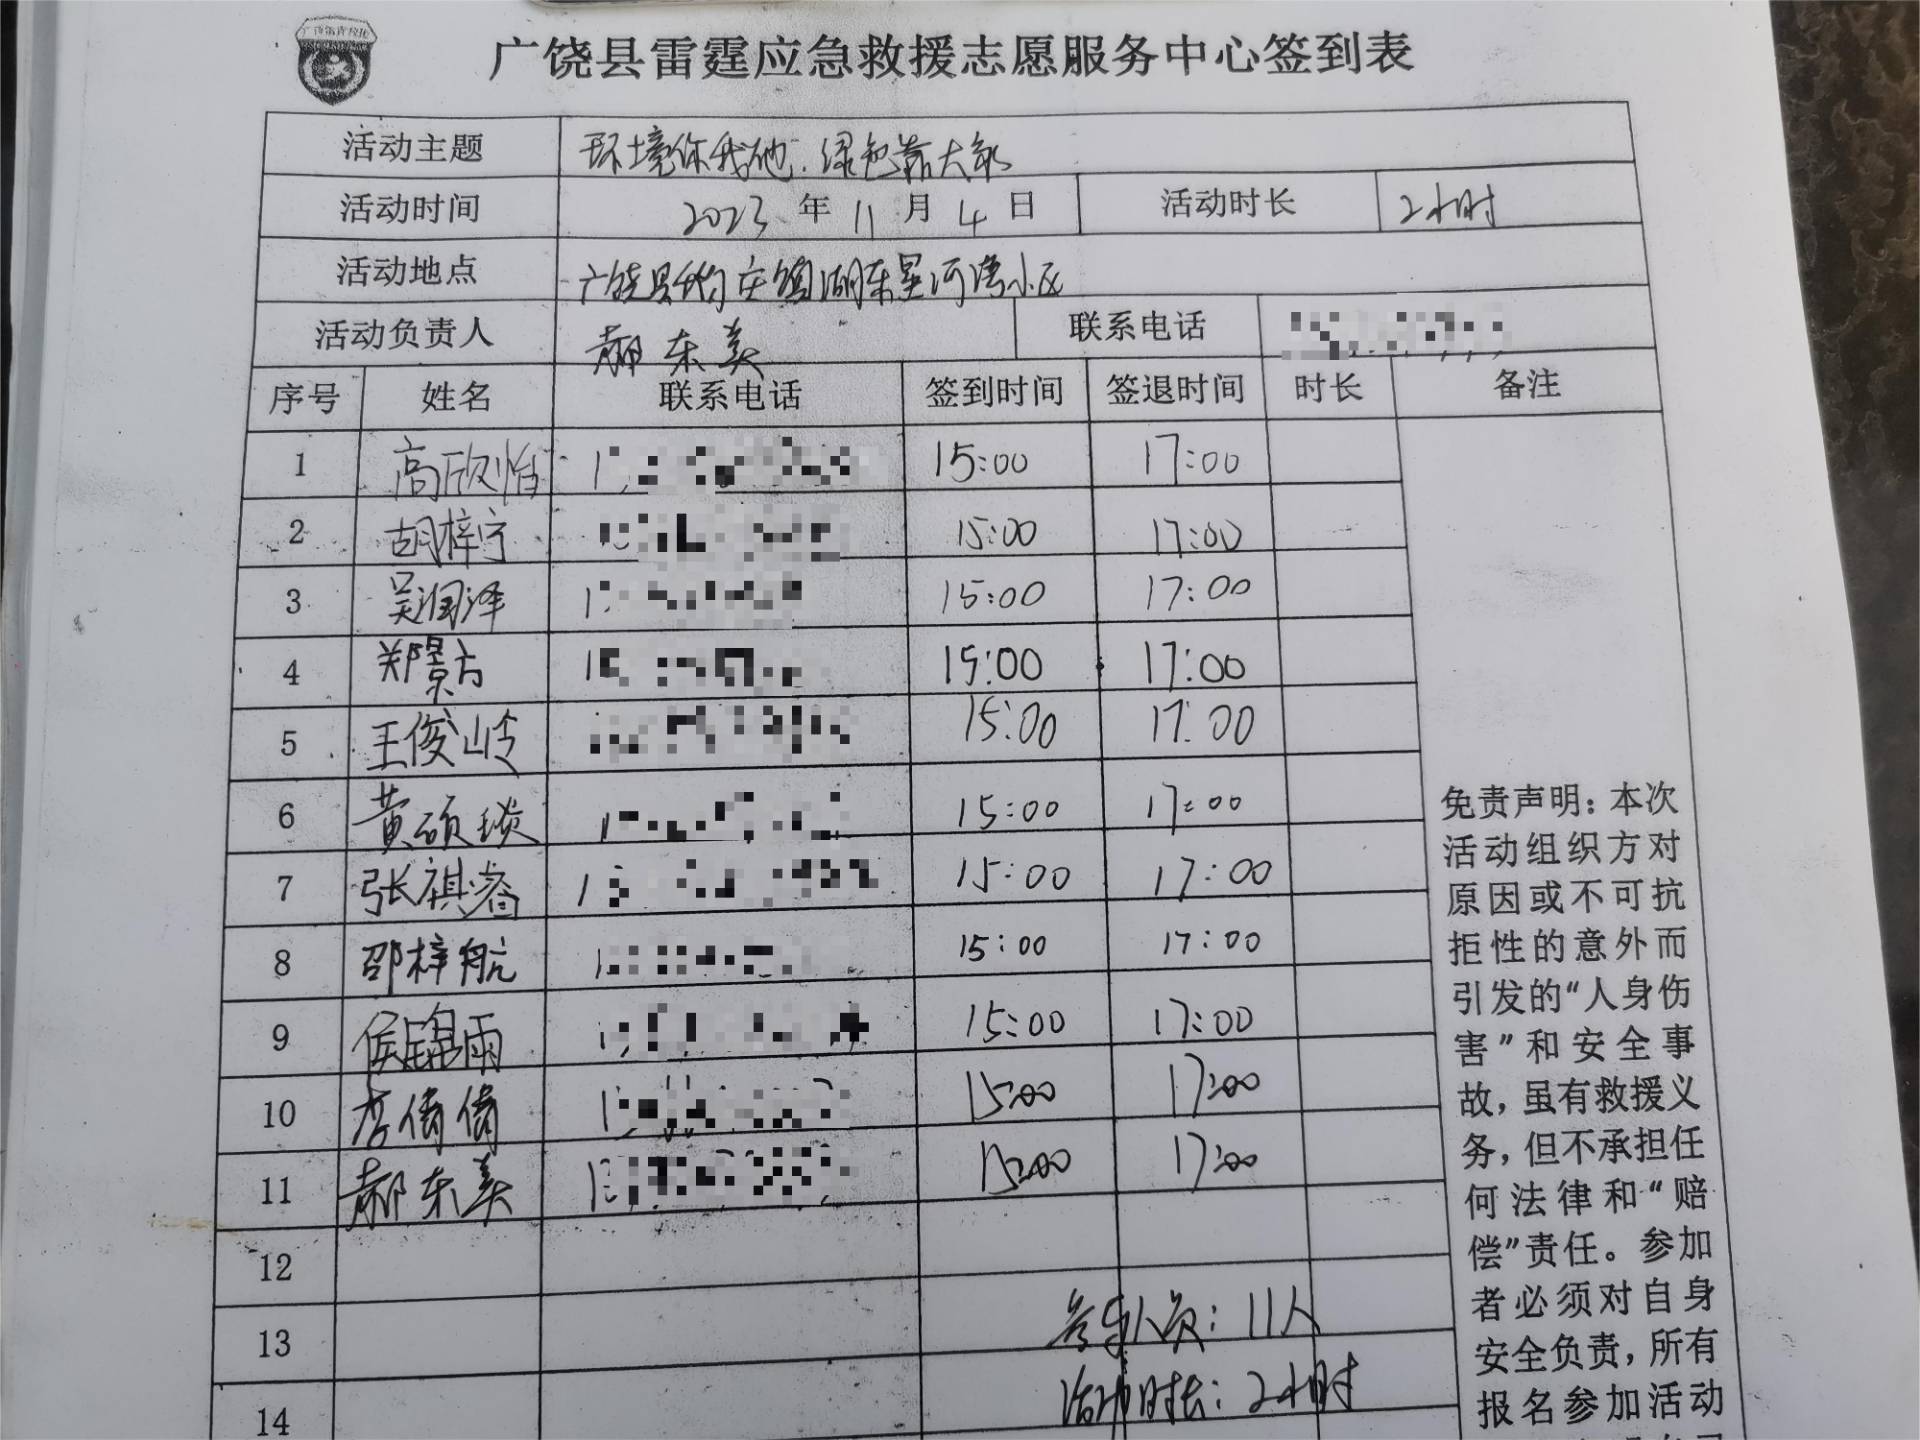 广饶县雷霆应急救援志愿服务中心签到表
活动主题 环境你我他.绿色靠大家
活动时间 2023年11月4日 活动时长 2小时
活动地点 广饶县 庄镇湖东星河湾小区
活动负责人 郝东美 联系电话
序号 姓名 联系电话 签到时间 签退时间 时长 备注
1 高欣怡 15:00 17:00
2 胡梓宁 15:00 17:00
3 吴润泽 15:00 17:00
4 郑景方 15:00 17:00
5 王俊岭 15:00 17:00
6 黄硕琰 15:00 17:00
7 张祺 15:00 17:00
8 邵梓航 15:00 17:00
9 侯锦雨 15:00 17:00
10 李倩倩 15:00 17:00
11 郝东美 15:00 17:00
12
13
14
参与人员：11人
活动时长：2小时
免责声明：本次
活动组织方对
原因或不可抗
拒性的意外而
引发的“人身伤
害”和安全事
故，虽有救援义
务，但不承担任
何法律和“赔
偿”责任。参加
者必须对自身
安全负责，所有
报名参加活动